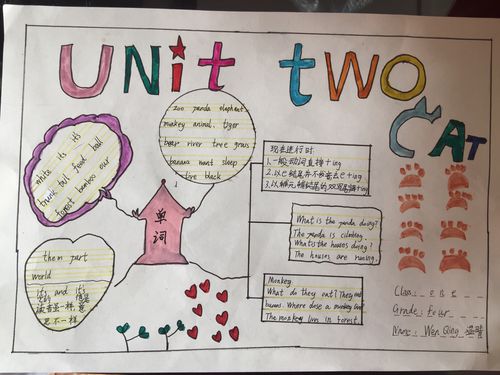 UNit two
CAT
zoo panda elephant
monkey animal. tiger
bear river tree grass
banana want sleep
live black
white its it's
trunk tail food ball
forest bamboo our
them part
world
its and it's
读音一样
思不一样
单词
现在进行时
1.一般动词直接+ing
2.以e结尾并不发音去e+ing
What is the panda doing?
The panda is climbing.
Whats the houses doing?
The houses are runing.
Monkey.
What do they eat? They eat
banans. Where dose a monkey live
The monkey lives in forest.
Class:
Grade: Four
Name: Wen Qing